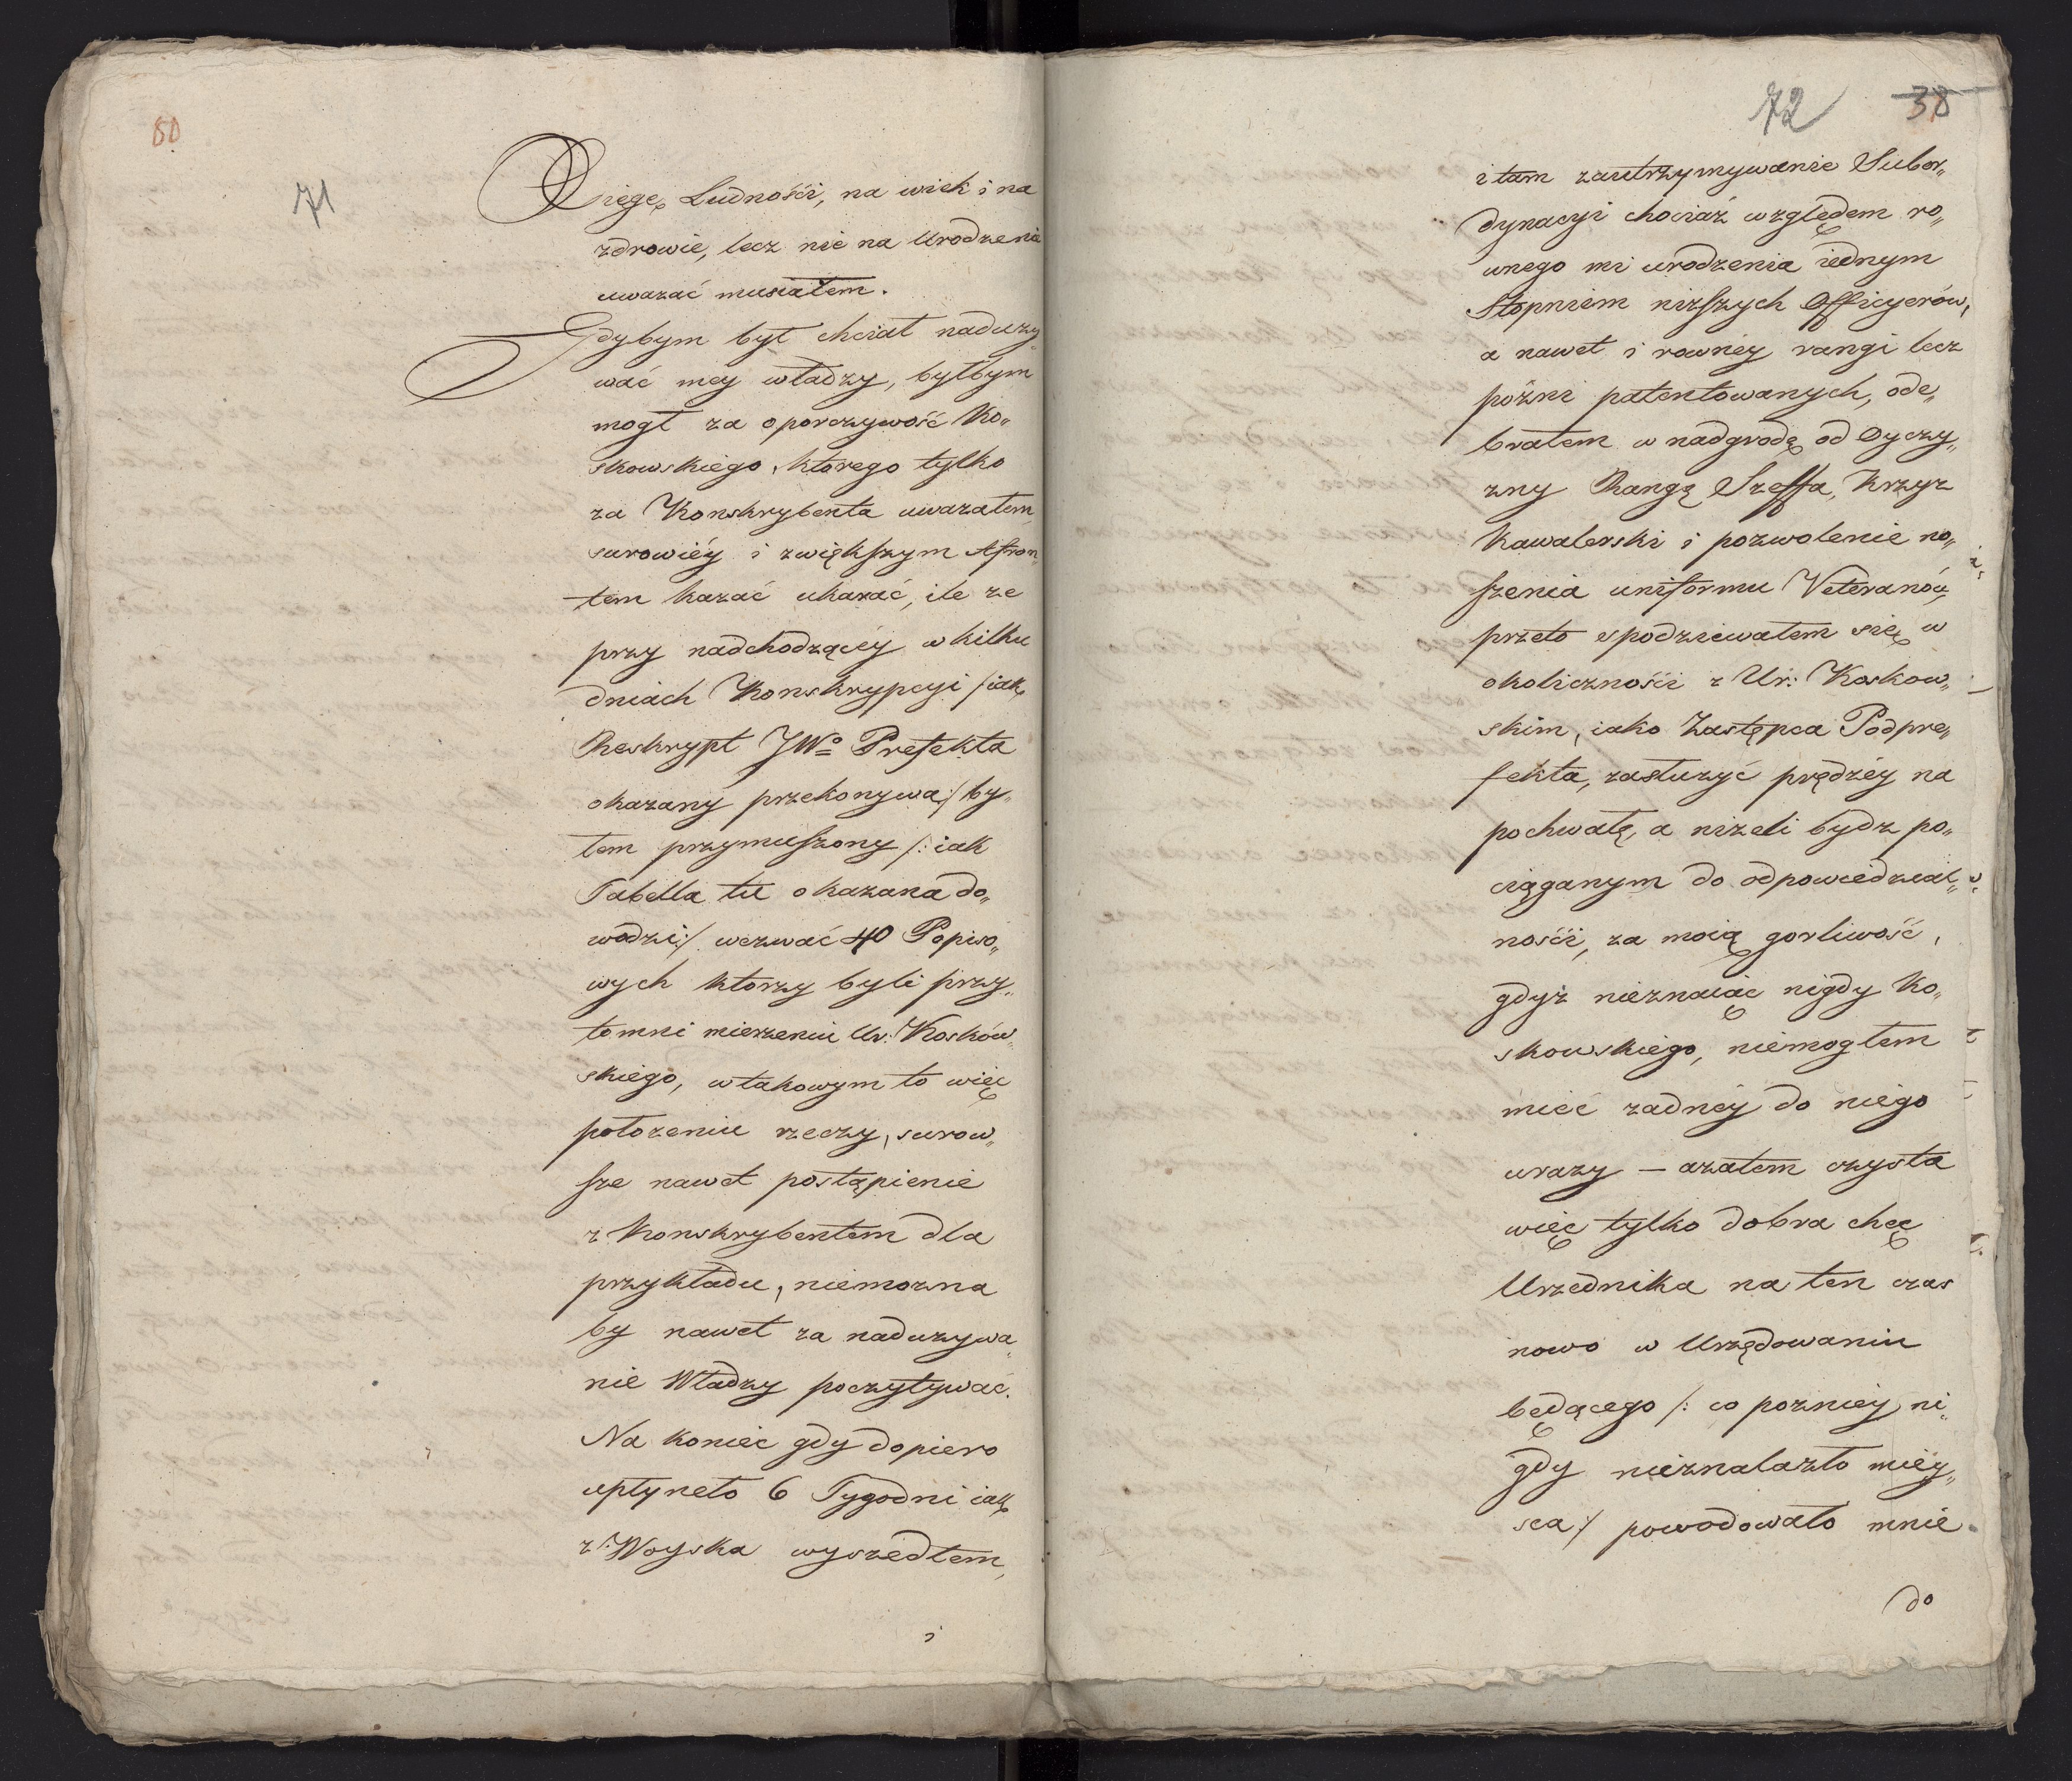 80
71
Xięgę Ludnośći, na wiek i na
zdrowie, lecz nie na Urodzenie
uwazać musiałem.
Gdybym był chciał naduzy„
wać mey władzy, byłbym
mogł za oporczywość Ko„
skowskiego, ktorego tylko
za Konskrybenta uwazałem,
surowiéy i zwiękſzym Afron„
tem kazać ukarać, ile ze
przy nadchodzącéy w kilku
dniach Konskrypcyi /:iak
Reskrypt JWo Prefekta
okazany przekonywa:/ by„
łem przymuſzony /: iak
Tabella tu okazana do„
wodzi:/ wezwać 40 Popiso„
wych ktorzy byli przy„
tomni mierzeniu Ur: Kosków„
skiego, w takowym to więc
połozeniu rzeczy, surow„
ſze nawet postąpienie
z Konskrybentem dla
przykładu, niemozna
by nawet za naduzywa„
nie Władzy poczytywać.
Na koniec gdy dopiero
upłyneło 6 Tygodni iak
z Woyska wyszedłem,
i
72 38
i tam zautrzymywanie Subor„
dynacyi chociaż względem ro„
wnego mi urodzenia iednym
Stopniem nizſzych Officyerów,
a nawet i rowney rangi lecz
pózni patentowanych, ode„
brałem w nadgrodę od Oyczy„
zny Rangą Szeffa, Krzyz
Kawalerski i pozwolenie no„
ſzenia uniformu Veteranów,
przeto spodziewałem się w
okolicznośći z Ur: Koskow„
skim, iako Zastępca Podpre„
fekta, zasłuzyć prędzéy na
pochwałę, a nizeli bydz po„
ciąganym do odpowiedzial„
nośći, za moią gorliwość,
gdyż nieznaiąc nigdy Ko„
skowskiego, niemogłem
mieć zadnéy do niego
urazy — azatem czysta
więc tylko dobra chęć
Urzednika na ten czas
nowo w Urzędowaniu
będącego /: co pozniey ni„
gdy nieznalazło miéy„
sca:/ powodowało mnie
do